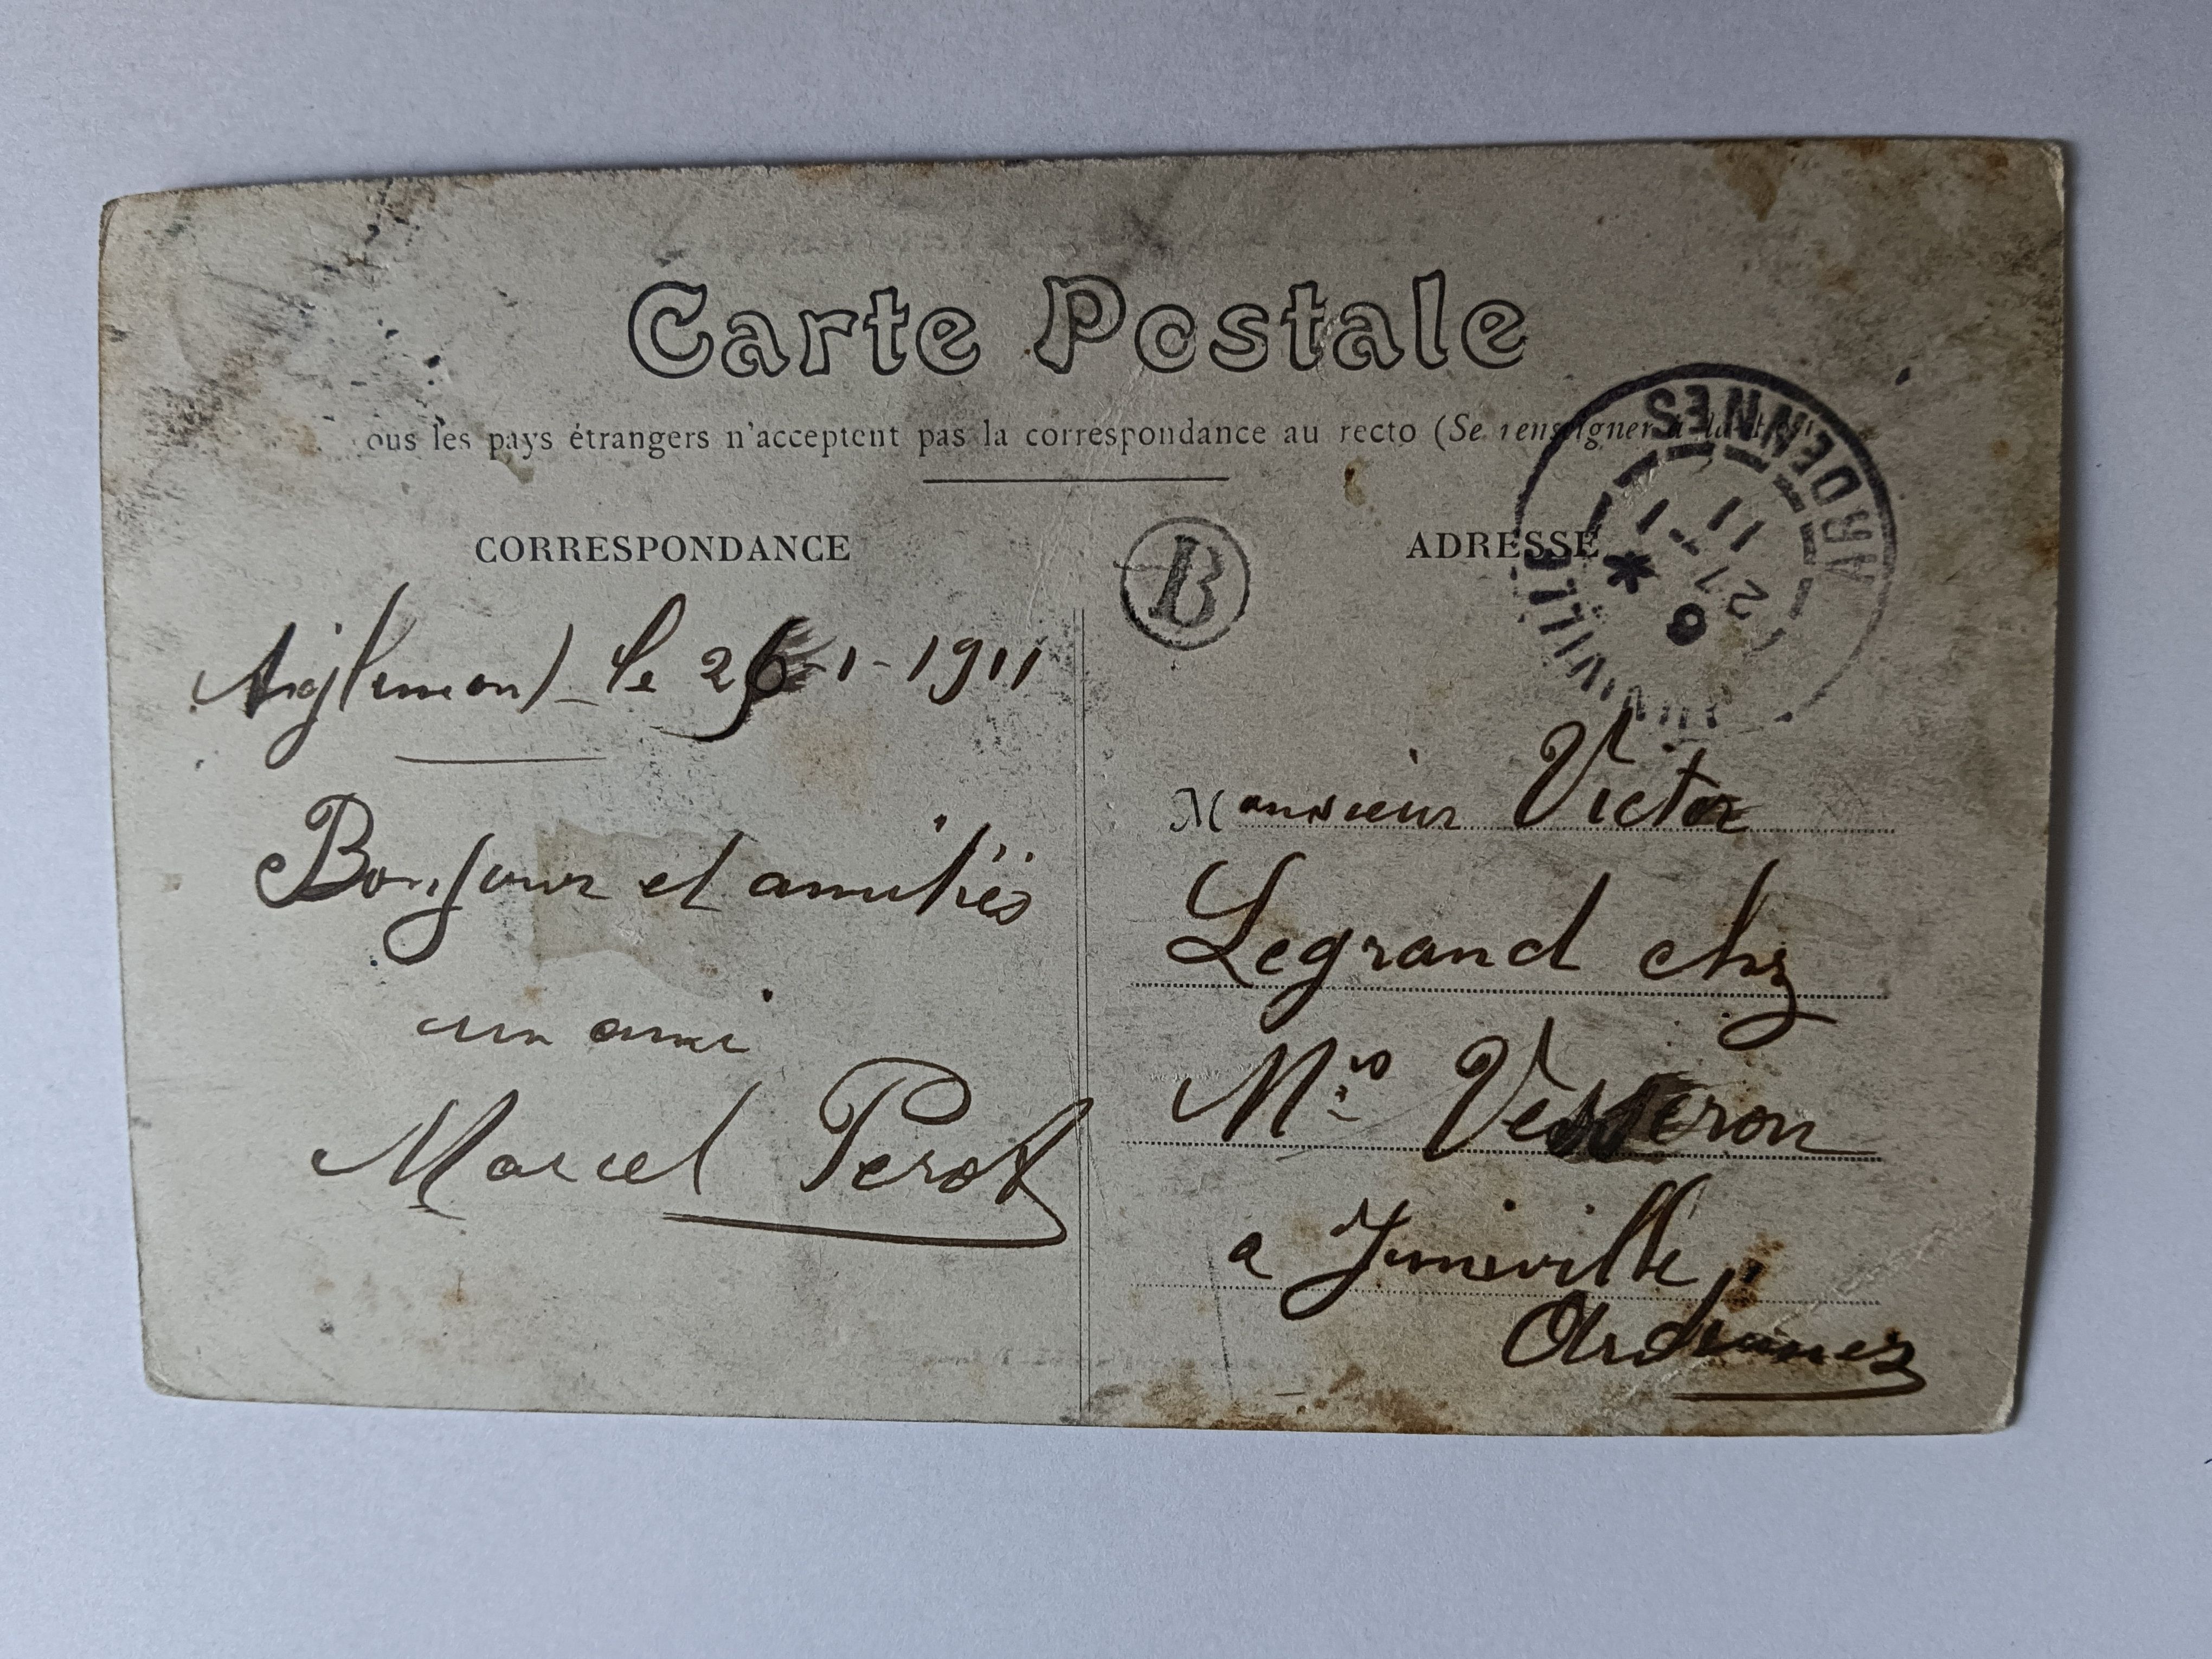 Carte Postale
ous les pays étrangers n'acceptent pas la correspondance au recto (Se renseigner à la
CORRESPONDANCE
ADRESSE
B
ARDENNES
* 6
27 - 1
11
Aiglemont le 26-1-1911
Bonjour et amitiés
un ami
Marcel Perot
Monsieur Victor
Legrand chz
Vesseron
a Juniville
Ardennes